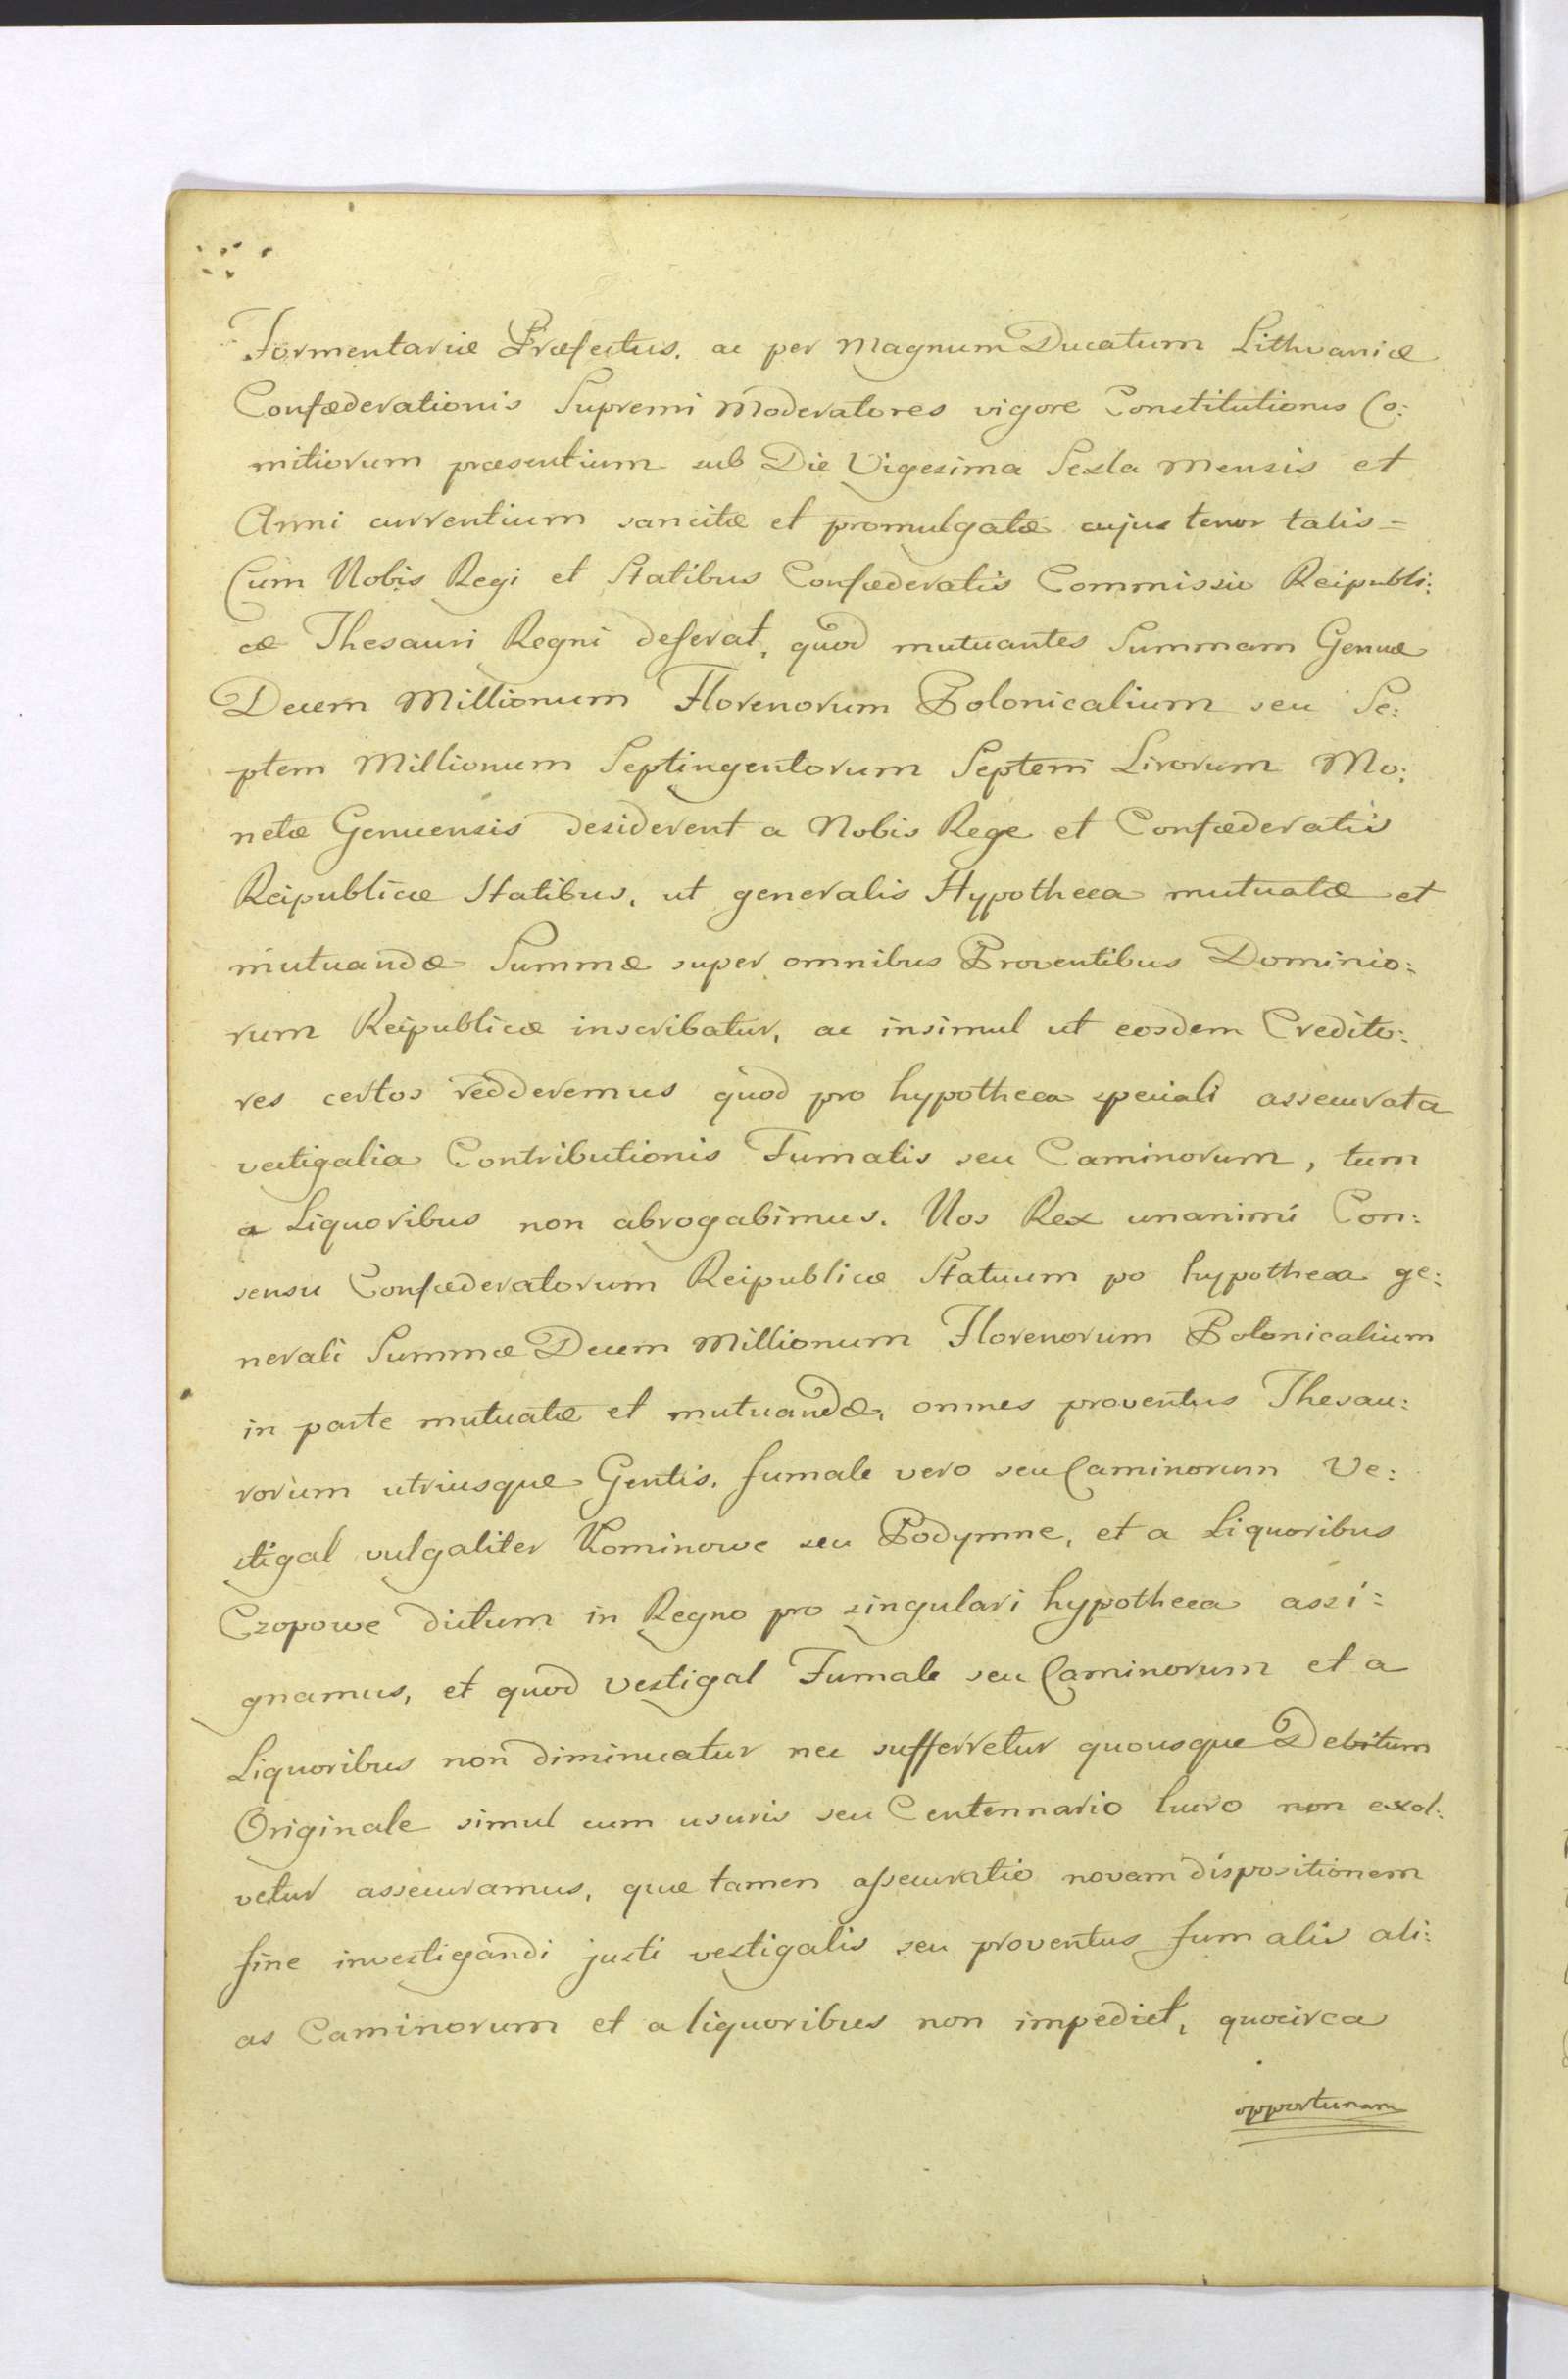 Tormentariæ Præfectus, ac per Magnum Ducatum Lithvaniæ
Confæderationis Supremi Moderatores vigore Constitutionis Co:
mitiorum præsentium sub Die Vigesima Sexta Mensis et
Anni currentium sancitæ et promulgatæ cujus tenor talis =
Cum Nobis Regi et Statibus Confæderatis Commissio Reipubli:
cæ Thesauri Regni deferat, quod mutuantes Summam Genuæ
Decem Millionum Florenorum Polonicalium seu Se:
ptem Millionum Septingentorum Septem Lirorum Mo:
netæ Genuensis desiderent a Nobis Rege et Confæderatis
Reipublicæ Statibus, ut generalis Hypotheca mutuatæ et
mutuandæ Summæ super omnibus Proventibus Dominio:
rum Reipublicæ inscribatur, ac insimul ut eosdem Credito:
res certos redderemus quod pro hypotheca speciali assecurata
vectigalia Contributionis Fumalis seu Caminorum, tum
a Liquoribus non abrogabimus. Nos Rex unanimi Con:
sensu Confæderatorum Reipublicæ Statuum po hypotheca ge:
nerali Summæ Decem Millionum Florenorum Polonicalium
in parte mutuatæ et mutuandæ, omnes proventus Thesau:
rorum utriusque Gentis, fumale vero seu Caminorum Ve:
ctigal vulgaliter Kominowe seu Podymne, et a Liquoribus
Czopowe dictum in Regno pro singulari hypotheca assi:
gnamus, et quod Vectigal Fumale seu Caminorum et a
Liquoribus non diminuatur nec sufferretur quousque Debitum
Originale simul cum usuris seu Centennario lucro non exol:
vetur assecuramus, quæ tamen assecuratio novam dispositionem
fine investigandi justi vectigalis seu proventus fumalis ali:
as Caminorum et a liquoribus non impediet, quocirca
opportunam